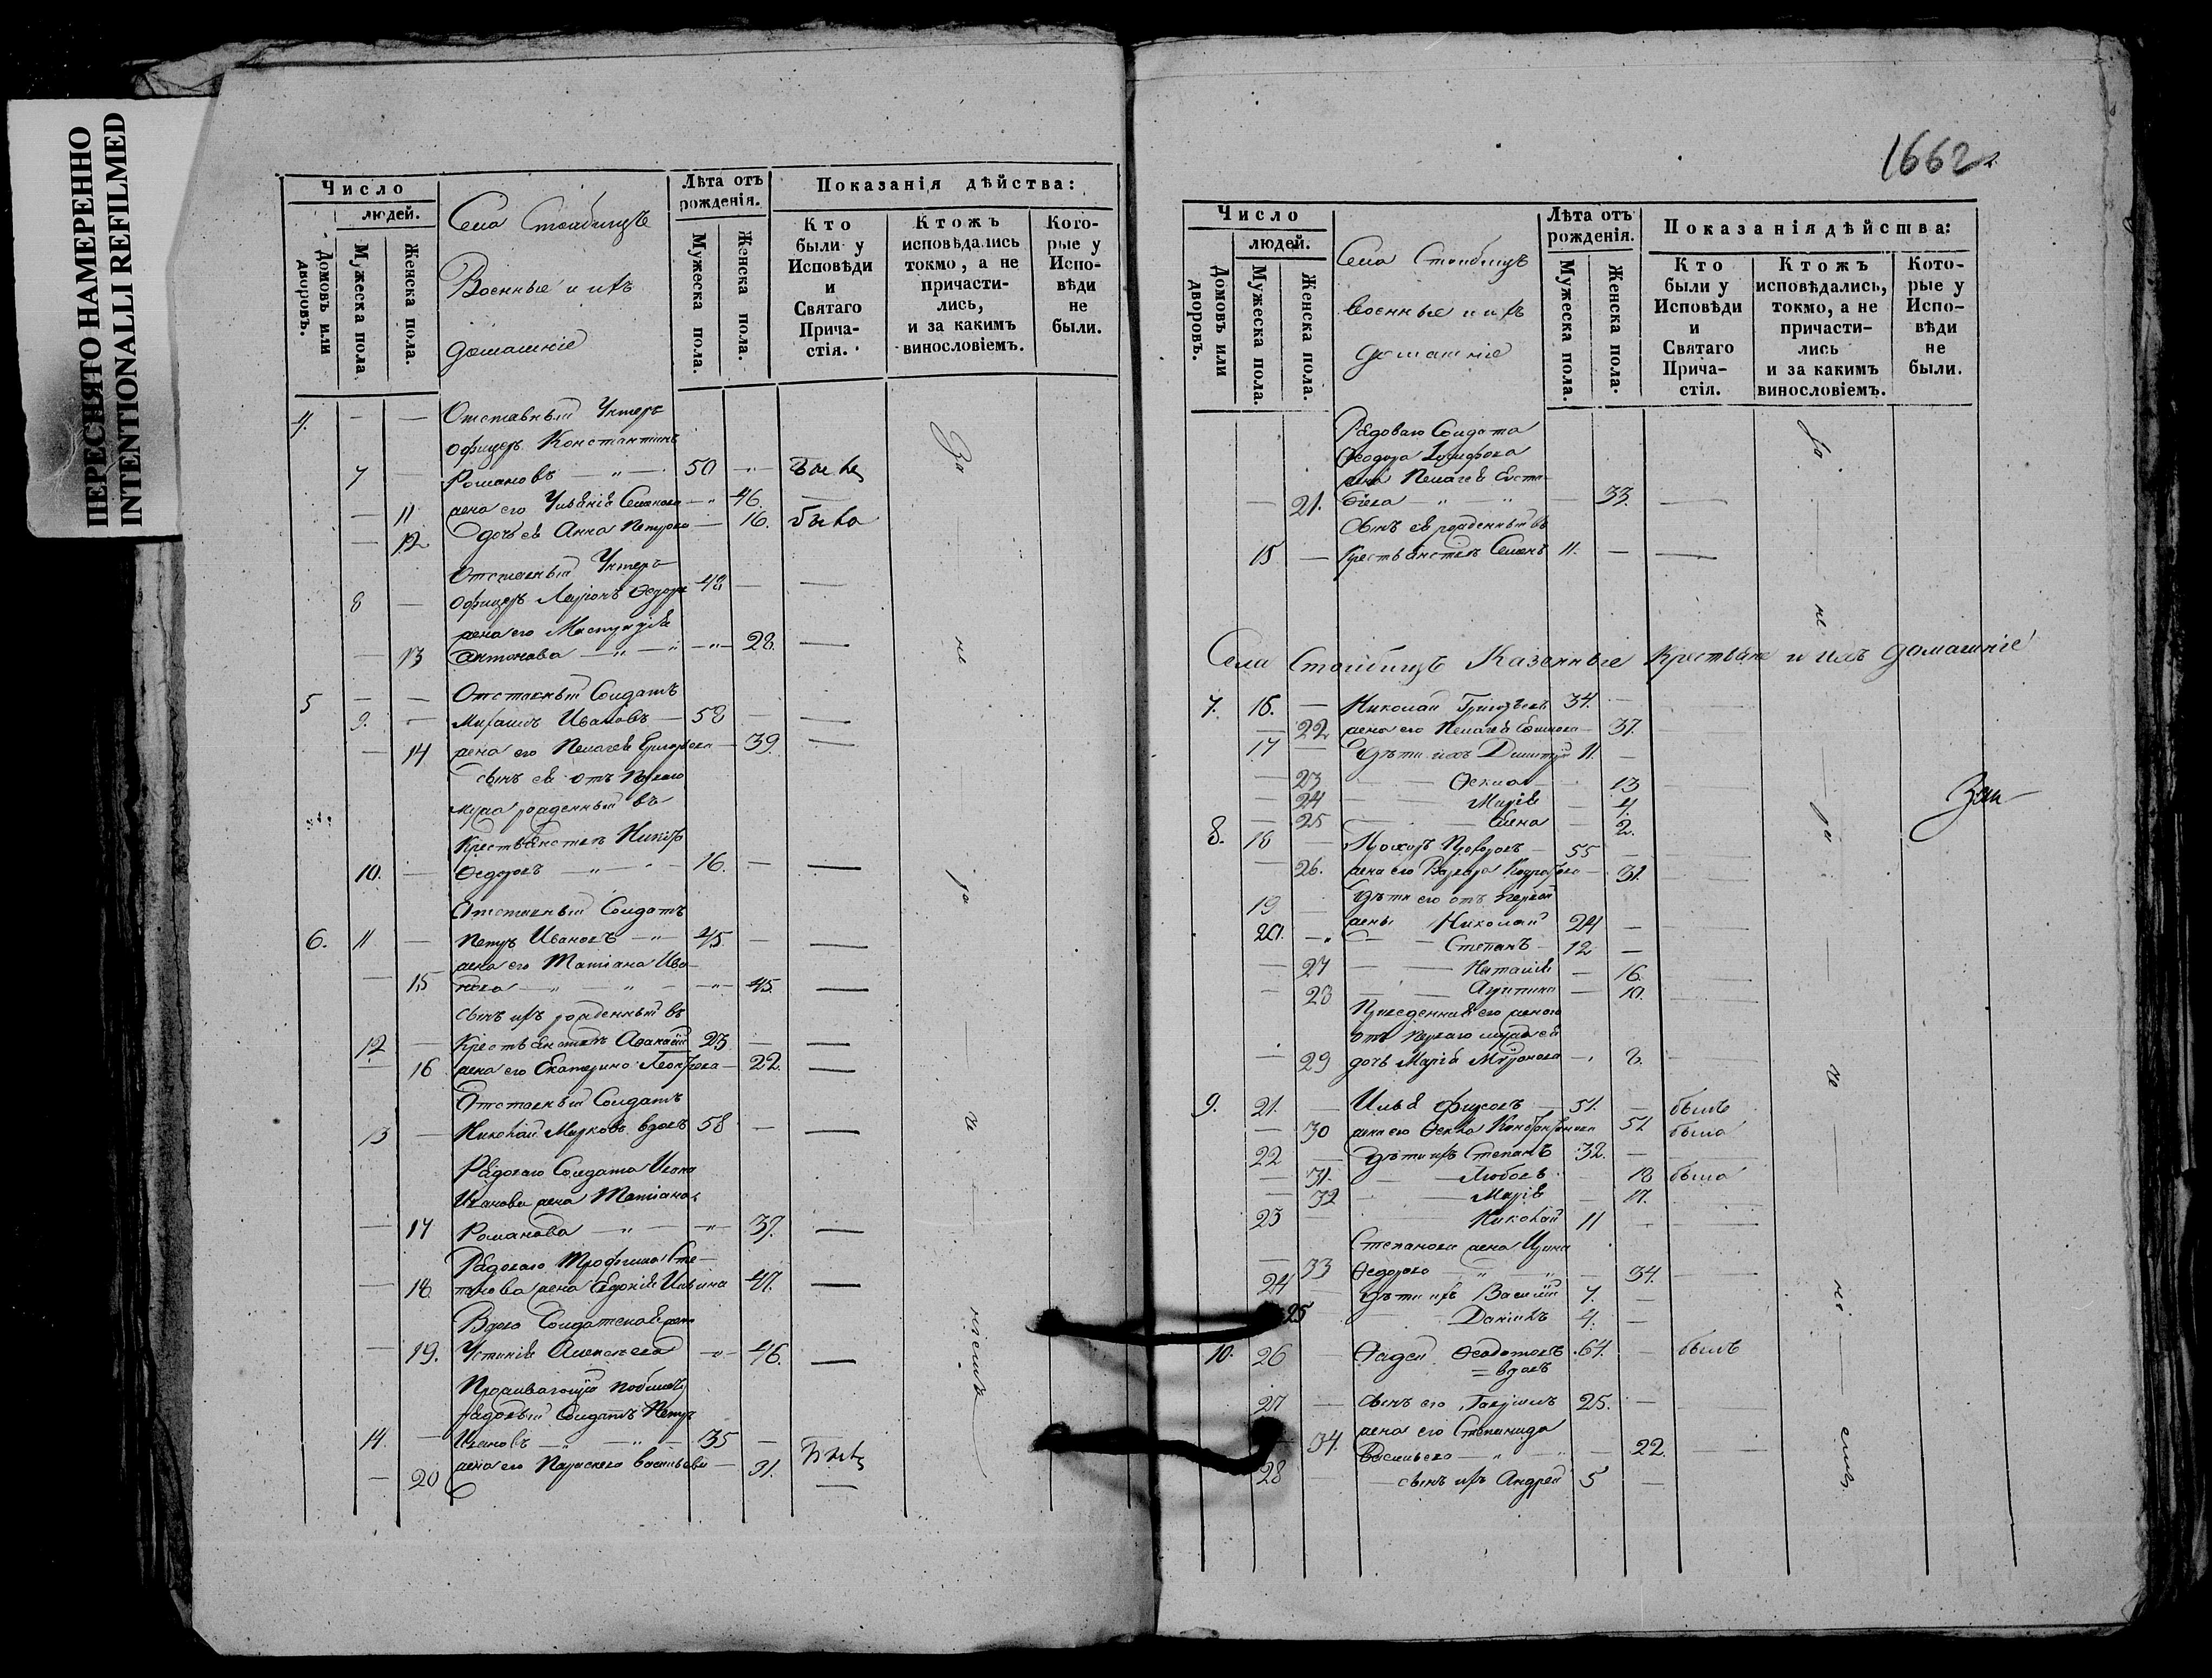 ПЕРЕСНЯТО НАМЕРЕННО
INTENTIONALLI REFILMED
Число
людей.
Домовъ или дворовъ.
Мужеска пола.
Женска пола.
Села Столбищъ
Военные и ихъ
домашніе
Лѣта отъ рожденія.
Мужеска пола.
Женска пола.
Показанія дѣйства:
Кто были у Исповѣди и Святаго Прича-стія.
Ктожъ исповѣдались токмо, а не причасти-лись, и за какимъ винословіемъ.
Кото-рые у Испо-вѣди не были.
4. — — Отставный Унтеръ
офицеръ Константинъ
7 — Романовъ — 50 — былъ
— 11 жена его Семенова — 46. —
— 12 дочь ея Анна Петрова — 16. была
Отставный Унтеръ
8 — офицеръ Ларіонъ Ѳедоровъ 48 — —
жена его Настасія
— 13 Антонова — 28. —
5 — — Отставный Солдатъ
9. — Михаилъ Ивановъ — 58 — —
— 14 жена его Пелагея Григорьева — 39. —
сынъ ея отъ перваго
мужа рожденный въ
Крестьянствѣ
10. — Ѳедоровъ — 16. — —
Отставный Солдатъ
6. 11 — Петръ Ивановъ — 45 — —
жена его Татіана Ива-
— 15 нова — 45. —
сынъ ихъ рожденный въ
12 — Крестьянствѣ Аѳанасій 23 — —
— 16 жена его Екатерина — 22. —
Отставный Солдатъ
13 — Николай Марковъ вдовъ 58 — —
Рядоваго Солдата
Иванова жена Татіана
— 17 Романова — 37. —
Рядоваго Трофима Сте-
— 18 панова жена Евдокія Ильина 47. —
Вдова Солдатская жена
— 19. Устинія Алексѣева — 46. —
Проживающій
рядовый Солдатъ Петръ
14. — Ивановъ — 35 —
— 20 жена его Параскева Васильева — 31. —
За
не
1662
Число
людей.
Домовъ или дворовъ.
Мужеска пола.
Женска пола.
Села Столбищъ
военные и ихъ
домашніе
Лѣта отъ рожденія.
Мужеска пола.
Женска пола.
Показанія дѣйства:
Кто были у Исповѣди и Святаго Прича-стія.
Ктожъ исповѣдались, токмо, а не причасти-лись и за какимъ винословіемъ.
Кото-рые у Испо-вѣди не были.
Рядоваго Солдата
Ѳеодора
жена Пелагея Евста-
— 21. фіева — 33. —
Сынъ ея рожденный въ
15 — Крестьянствѣ Семенъ 11. — —
Села Столбищъ Казенные Крестьяне и ихъ домашніе
7. 16. — Николай Григорьевъ 34. —
— 22 жена его Пелагея — 37.
17 — Дѣти ихъ Димитрій 11. —
— 23 — Ѳекла — 13
— 24 — Марія — 4.
— 25 — Елена — 2.
8. 18 — Прохоръ Прохоровъ — 55 —
— 26. жена его Варвара — 31.
Дѣти его отъ первой
19 — жены Николай 24 —
20. — Степанъ — 12 —
— 27 — Наталія — 16.
— 28 — Агрипина — 10.
Приведенная его женою
отъ перваго мужа ея
— 29 дочь Марія Миронова — 8. —
9. 21. — Илья Фирсовъ — 51. — былъ
— 30 жена его Ѳекла Константинова 51 была
22 — Дѣти ихъ Степанъ 32. —
— 31. — Любовь — 18 была
— 32 — Марія — 17. —
23 — Николай 11 — —
Степанова жена Ирина
— 33 Ѳедорова — 34. —
24 — Дѣти ихъ Василій 7. —
25 — Даніилъ 4. —
10. 26 — Ѳадей Ѳедотовъ 64. — былъ
= вдовъ
27 — сынъ его Гавріилъ 25. —
жена его Степанида
34. Васильева — 22. —
28 — сынъ ихъ Андрей 5 —
За
не